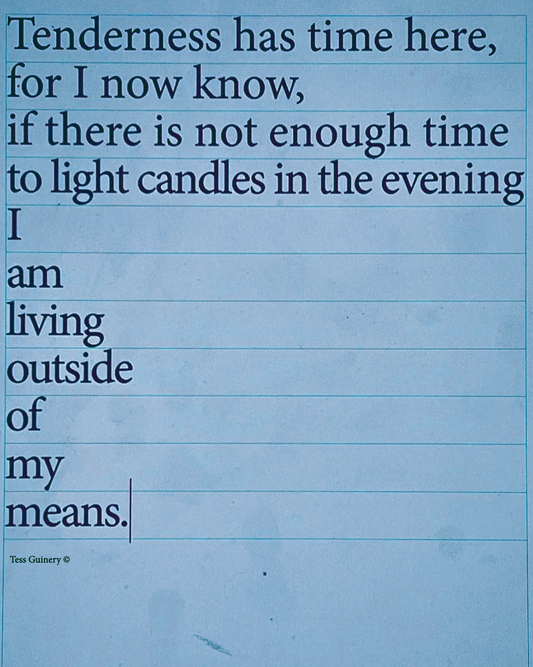 Tenderness has time here,
for I now know,
if there is not enough time
to light candles in the evening
I
am
living
outside
of
my
means.
Tess Guinery ©